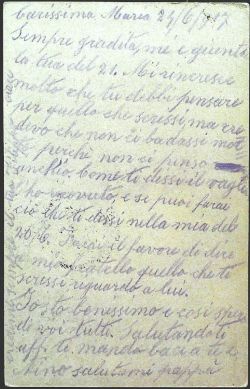 Carissima Maria 24/6/917
Sempre gradita, mi è giunta
la tua del 21. Mi rincresce
molto che tu debbi pensare
per quello che scrissi, ma cre
devo che non ci badassi mol
perchè non ci penso
meglio, come ti dissi il vaglia
l'ho ricevuto, e se puoi farai
ciò che ti dissi nella mia del
20-6. Farai il favore di dire
a mio fratello quello che ti
scrissi riguardo a lui.
Io sto benissimo e così spero
di voi tutti. Salutandoti
aff. ti mando baci a te e
Nino salutami pappà